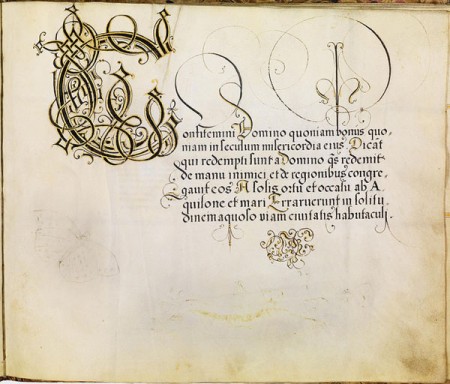 Confitemini Domino quoniam bonus quo-
niam in seculum misericordia eius. Dicāt
qui redempti sunt a Domino q̄s redemit
de manu inimici et de regionibus congre
gauit eos A solis ortu et occasu ab A
quilone et mari Errauerunt in solitu
dinem aquoso viam ciuitatis habitaculi.